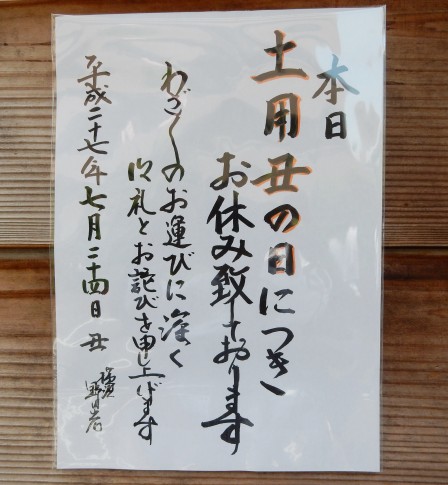 本日
土用丑の日につき
お休み致しております
わざ〱のお運びに深く
御礼とお詫びを申し上げます
平成二十七年七月二十四日 丑
野田岩